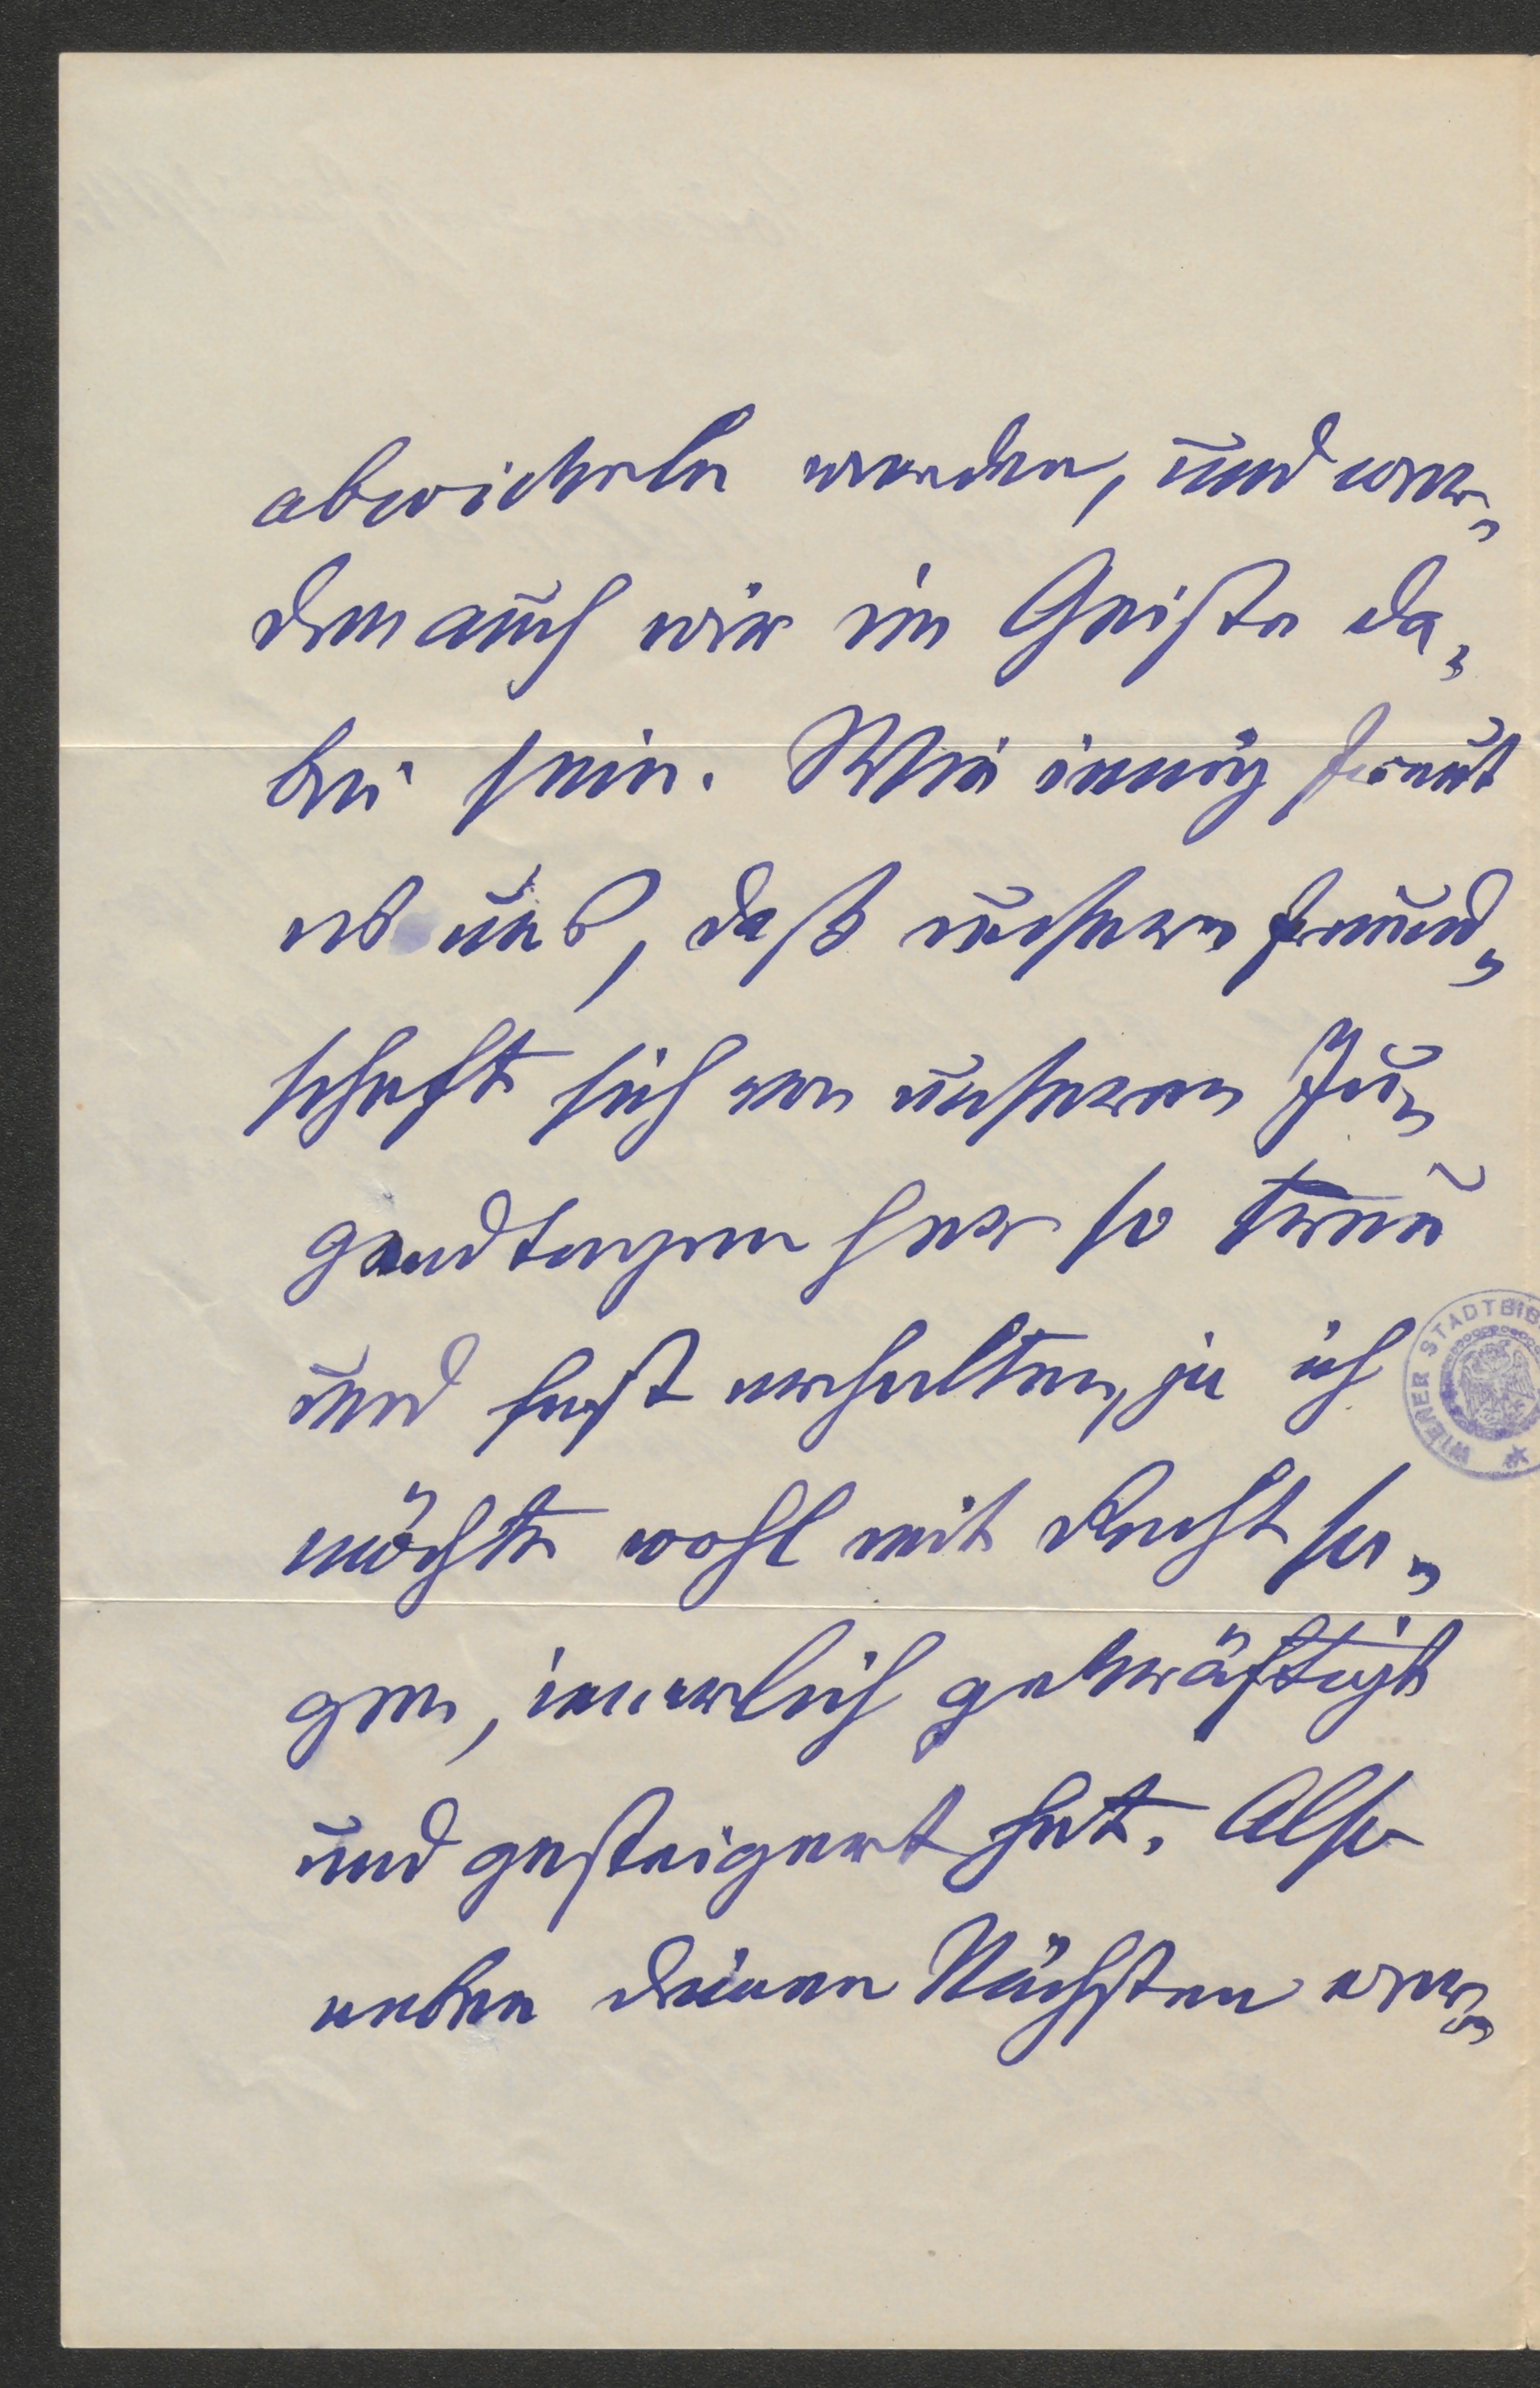 abwickeln werden, und wer„
den auch wir im Geiste da„
bei sein. Wie innig freut
es uns, daß unsere Freund„
schaft sich von unseren Ju„
gendtagen her so treu
und fest erhalten, ja ich
möchte wohl mit Recht sa„
gen, innerlich gekräftigt
und gesteigert hat. Also
neben deinen Nächsten wer„
WIENER STADTBIB